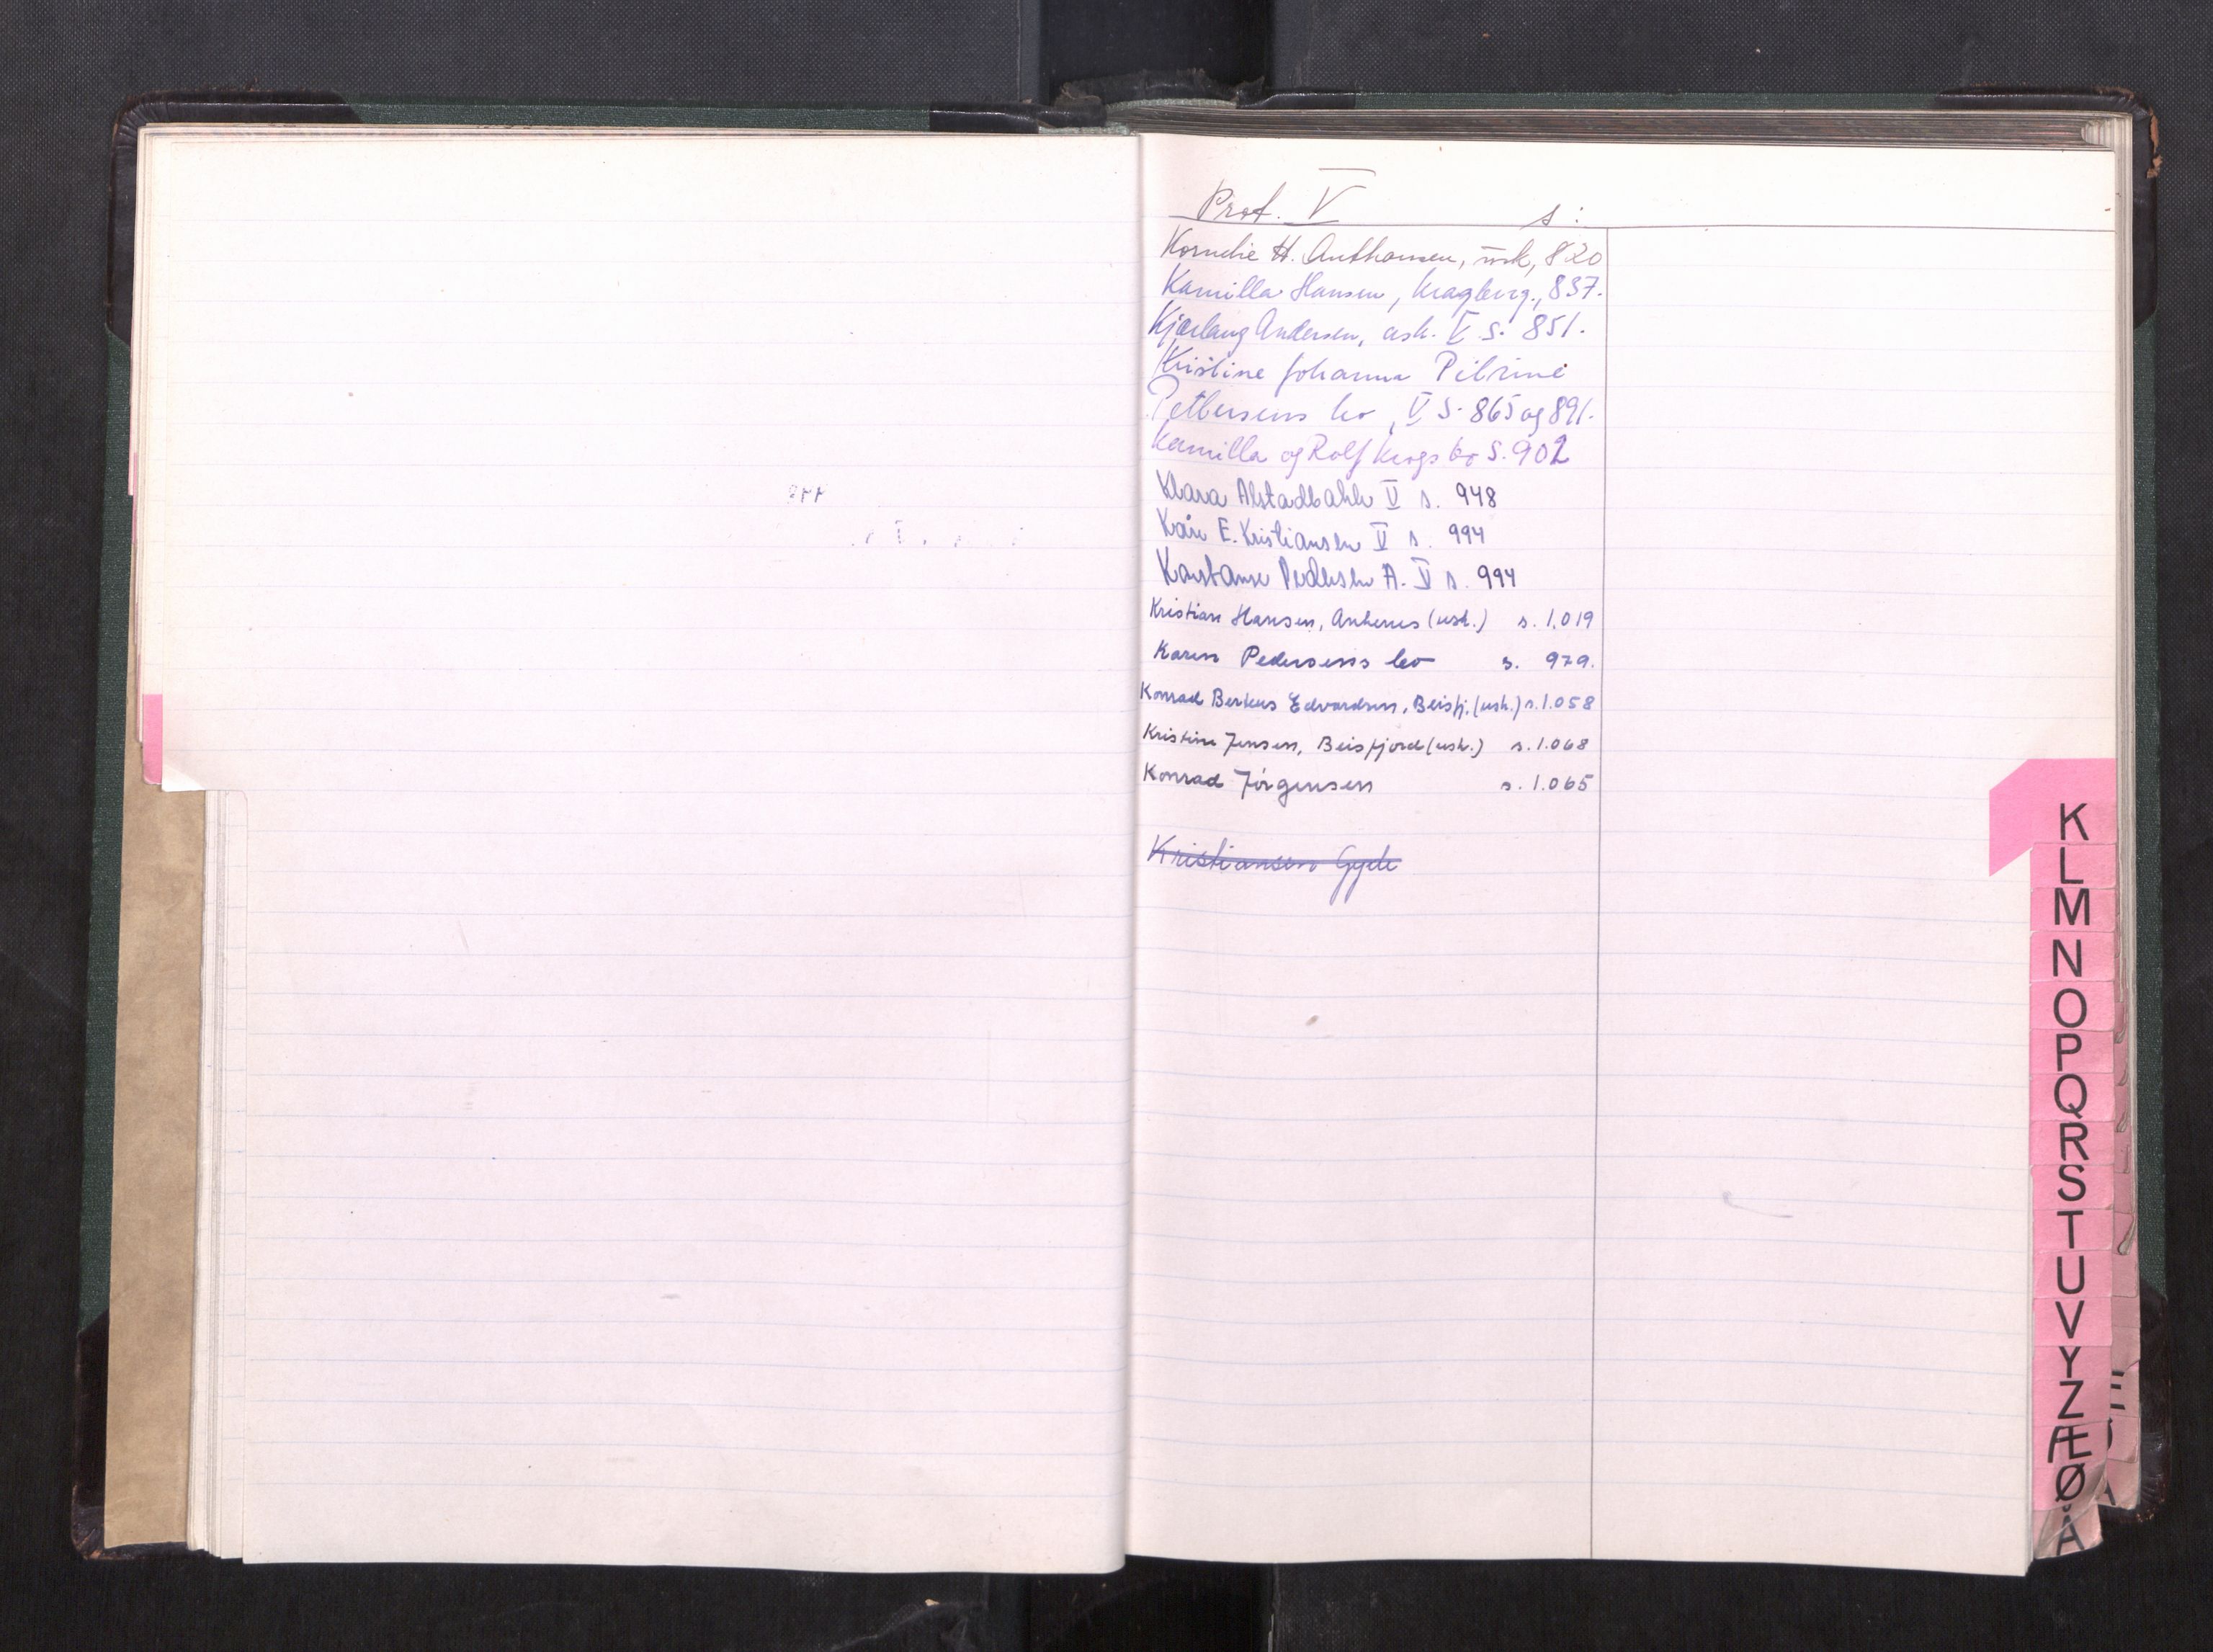 Prot. V s:
Kornelie H. Anthonsen, usk, 820
Kamilla Hansen, Kragberg., 837.
Kjærlaug Andersen, ush. V S. 851.
Kristine Johanna Pitrine
Pettersens bo, V S. 865 og 891.
Kamilla og Rolf Krogs bo S. 902
Klara Alstadbakk V s. 948
Kåre E. Kristiansen V s. 994
Konstanse Pedersen A. V s. 994
Kristian Hansen, Ankenes (ush.) s. 1.019
Karen Pedersens bo s. 979.
Konrad Berteus Edvardsen, Beisfj. (ush.) s. 1.058
Kristine Jensen, Beisfjord (ush.) s. 1.068
Konrad Jörgensen s. 1.065
Kristiansen Gyda
K
L
M
N
O
P
Q
R
S
T
U
V
Y
Z
Æ
Ø
Å